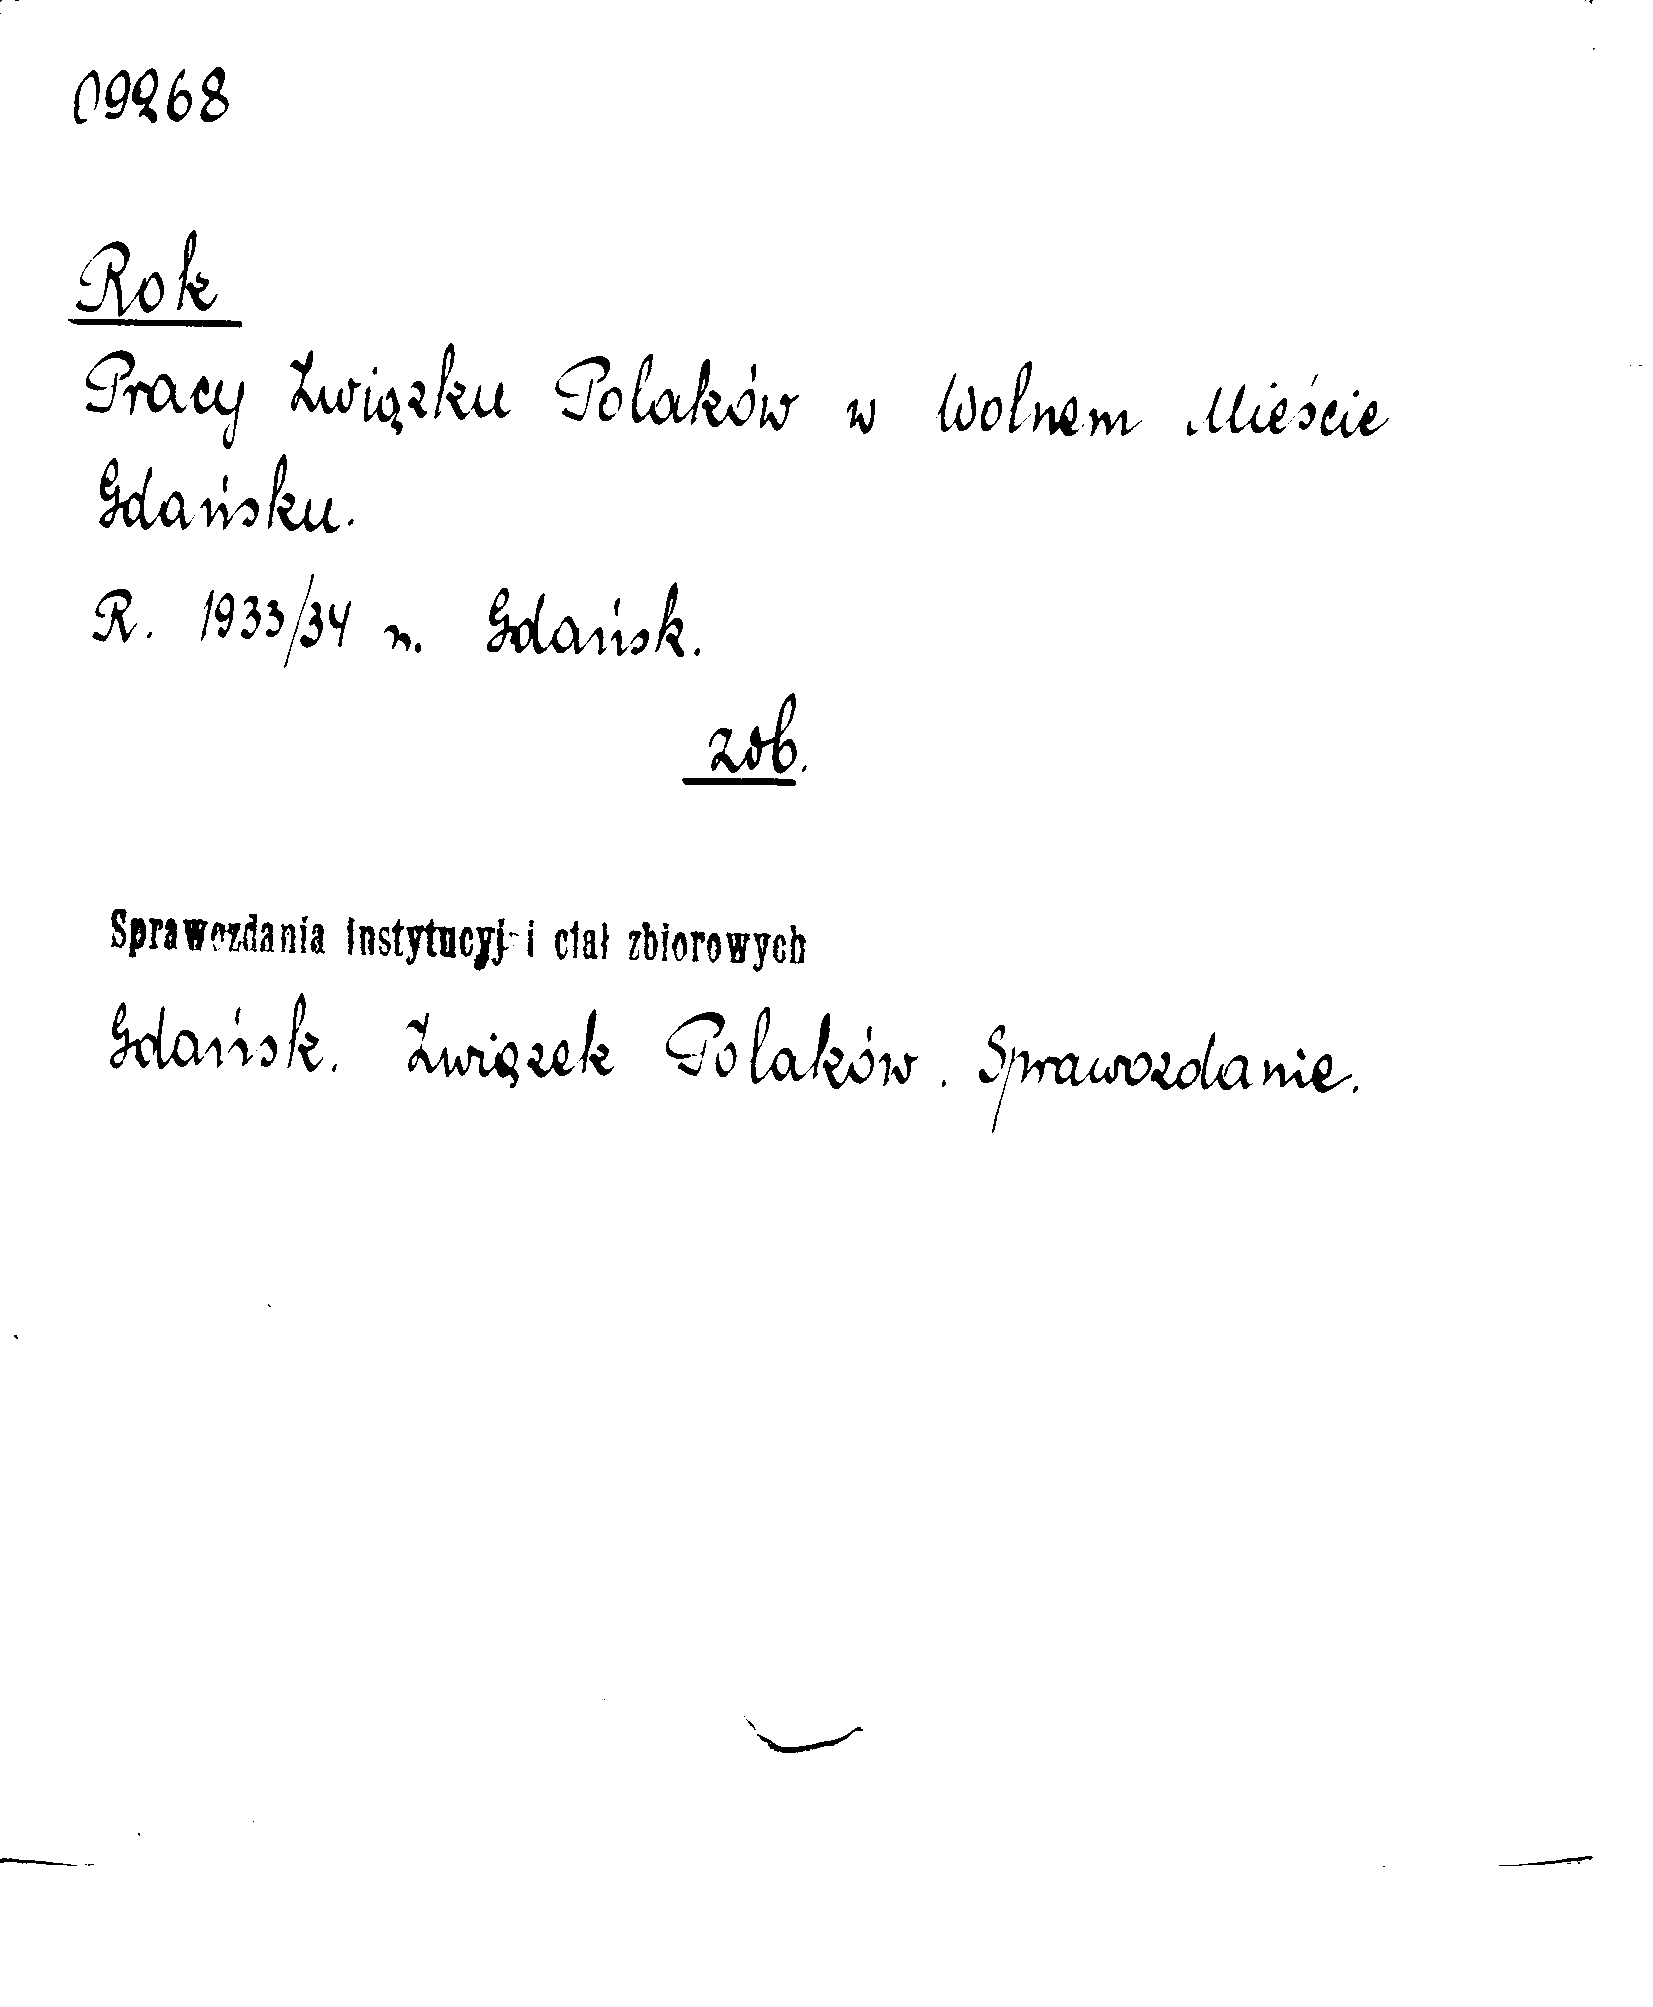 09268
Rok
Pracy Związku Polaków w Wolnem Mieście
Gdańsku.
R. 1933/34 n. Gdańsk.
zob.
Sprawozdania instytucyj i ciał zbiorowych
Gdańsk. Związek Polaków. Sprawozdanie.